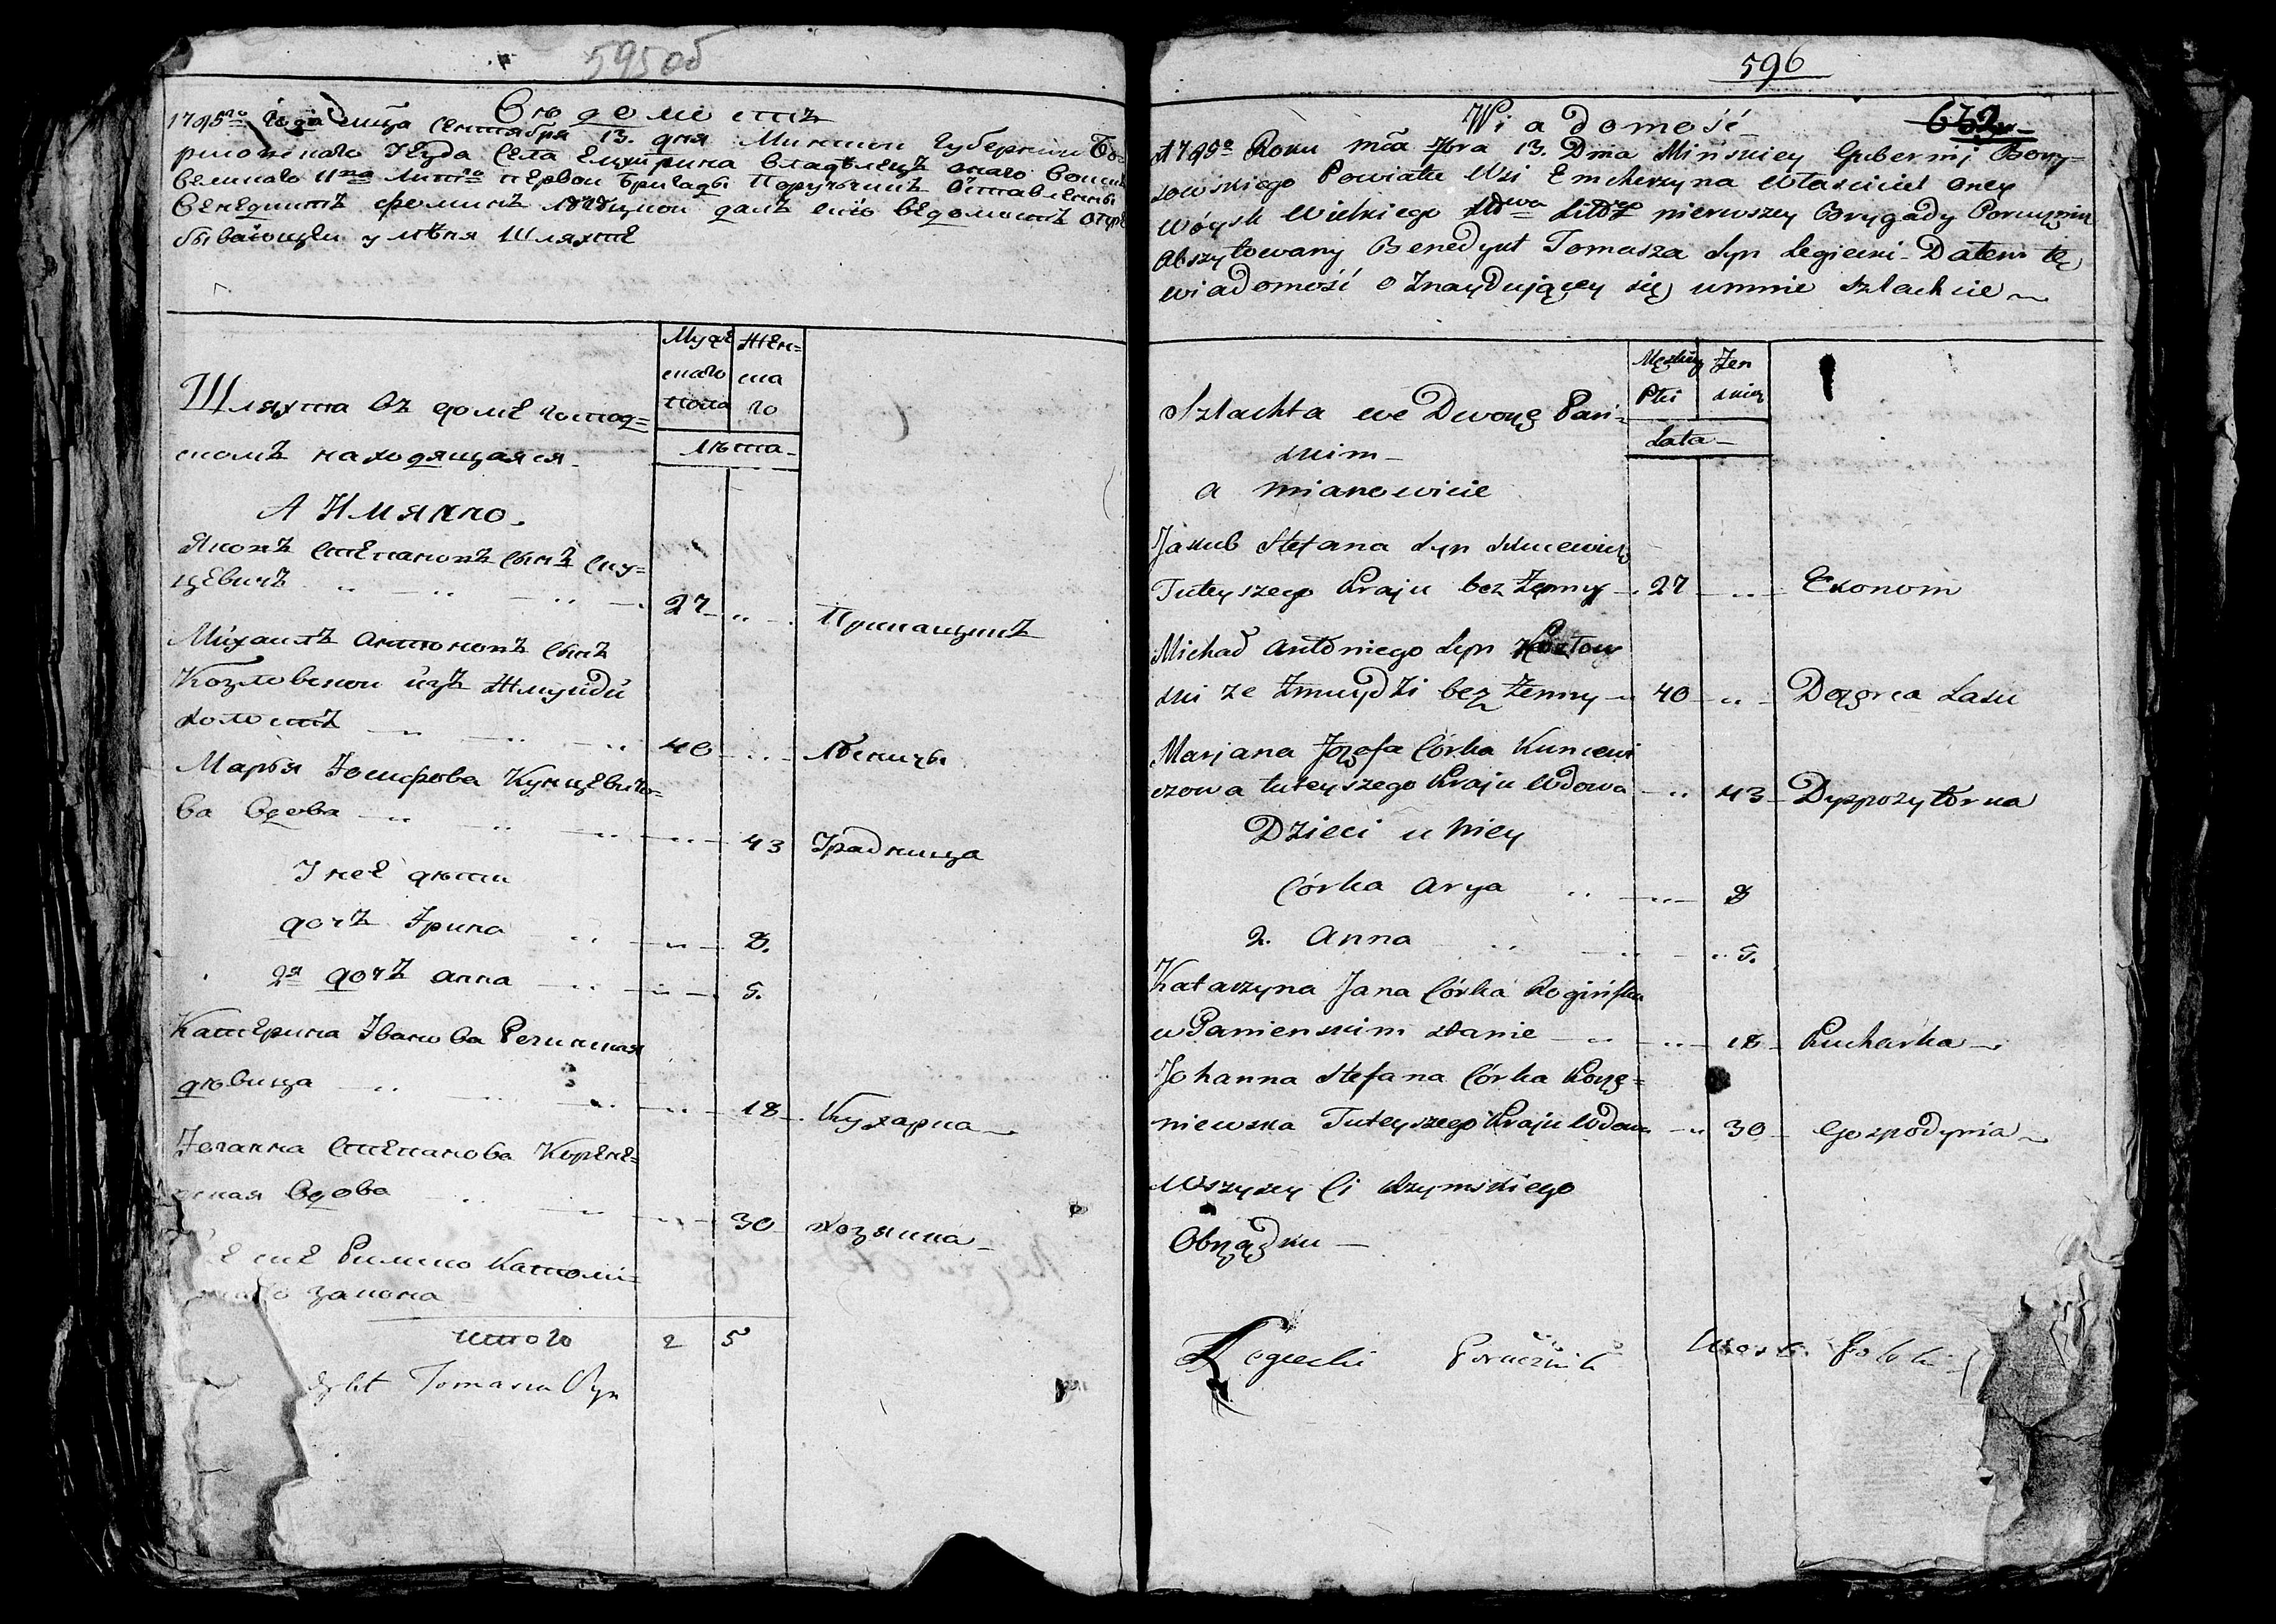 595 об
Вѣдомость
1795го Года мца Сентября 13. дня Минской Губернии Бо=
рисовскаго уезда села Емхирина владѣлецъ онаго войскъ
великаго Кнва Литго первой Бригады Поручикъ
Бенедиктъ далъ сию ведомость
бывающей у мѣня Шляхте
Шляхта въ доме господ=
скомъ находящаяся
Муже
скаго
пола
Жен=
ска
го
Лѣта
А Имянно
Якопъ Степановъ сынъ Ску=
цевичъ 27 Прикащикъ
Михаилъ Антоновъ сынъ
Козловской изъ Жмуйди
холостъ 40 Лѣсничы
Марья Іосифова Кунцевичо=
ва вдова 43 Урадница
У нее дѣти
дочъ Ирина 8.
2я дочъ Анна 5.
Катерина Иванова Регинская
дѣвица 18 Кухарка
Іоганна Степанова Корене=
вская вдова 30 хозяика
Римско Католи=
закона
итого 2 5
dykt Tomasza Syn
596
632
Wiadomość
1795o Roku mca 7bra 13. Dnia Mińskiey Gubernij Bory=
sowskiego Powiatu Wsi Emcherzyna Właściciel oney
Wóysk Wielkiego Xtwa Littgo pierwszey Brygady Porucznik
Abszytowany Benedykt Tomasza Syn Legiecki Dałem tę
wiadomość o Znayduiącey się umnie Szlachcie
Szlachta we Dworze Pań=
skim
a mianowicie
Męskiey
Płci
Żen
skiey
Lata
Jakub Stefana Syn Skucewicz
Tuteyszego Kraju bez Żenny 27 Ekonom
Michał Antoniego Syn Kozłow
ski ze Żmuydzi bez Żenny 40 Dozorca Lasu
Marjana Jozefa Córka Kuncewi
czowa tuteyszego Kraju Wdowa 43 Dyspozytorka
Dzieci u Niey
Córka Arya 8
2. Anna 5.
Katarzyna Jana Córka Rogińska
w Panieńskim stanie 18 Kucharka
Johanna Stefana Córka Korze=
niewska Tuteyszego Kraju Wdowa 30 Gospodynia
Wszyscy Ci Rzymskiego
Obrządku
Legiecki Porucznik